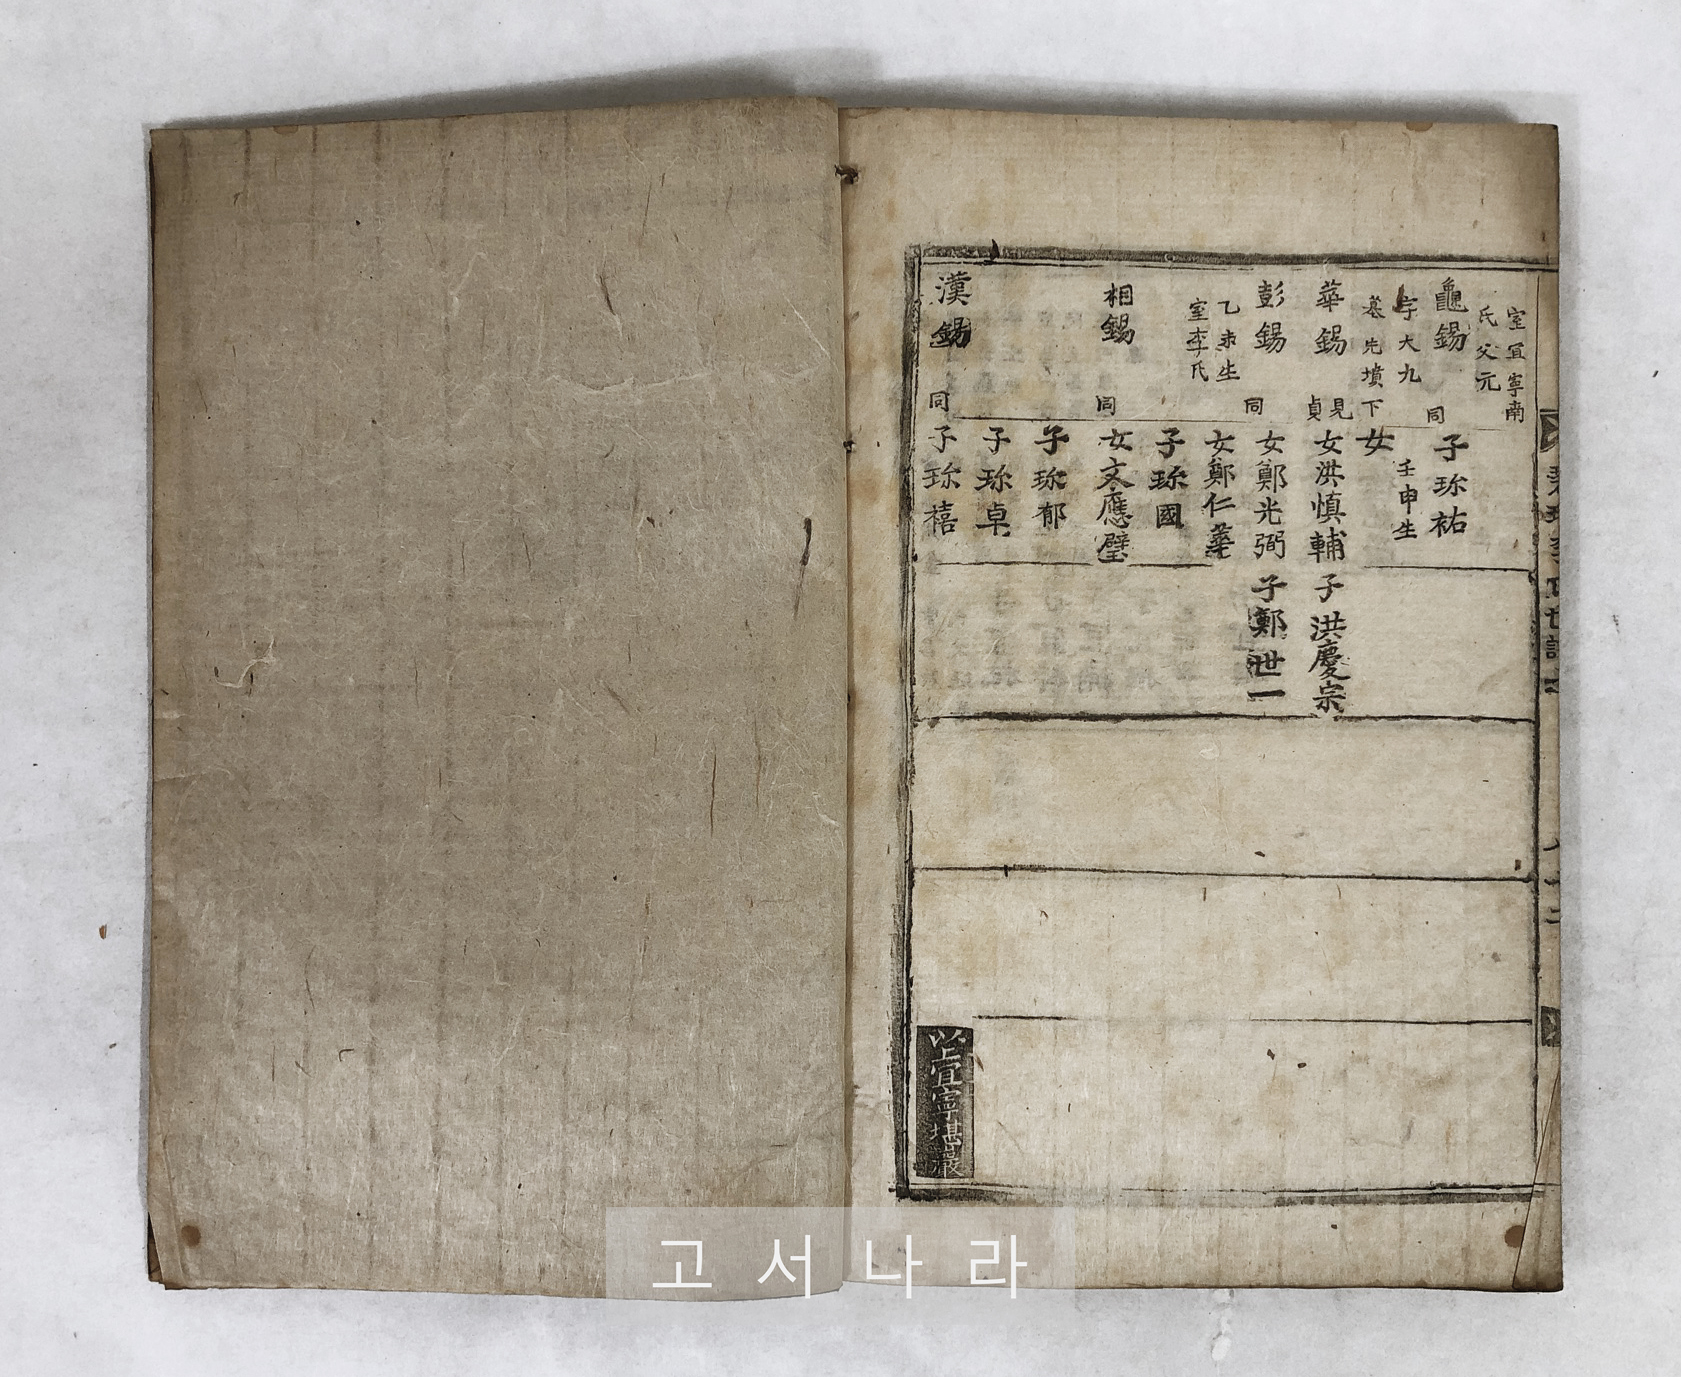 室宜寧南
氏父元
龜錫
同
字大九
墓先墳下
華錫
見
貞
彭錫
同
乙未生
室李氏
相錫
同
漢錫
同
子珎祐
壬申生
女
女洪慎輔
女鄭光弼
女鄭仁華
子珎國
女文應璧
子珎郁
子珎卓
子珎禧
子洪慶宗
子鄭世一
以上宜寧堪巖
고서나라